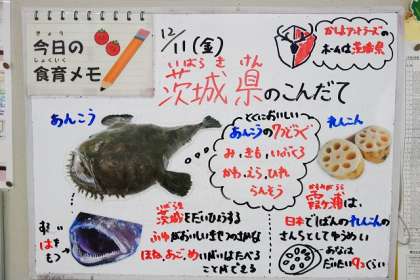 きょう
今日の
しょくいく
食育メモ
12/11(金)
いばらき けん
茨城県のこんだて
かしまアントラーズの
ホームは茨城県
あんこう
とくにおいしい
あんこうの7つどうぐ
み、きも、いぶくろ
かわ、えら、ひれ
らんそう
れんこん
するどい
はを
もつ
いばらき
茨城をだいひょうする
ふゆがおいしいきせつのさかな
ほね、あご、めいがいはたべる
ことができる
かすみがうら
霞ヶ浦は、
日本でいちばんのれんこんの
さんちとしてゆうめい
あなは
だいたい9つくらい